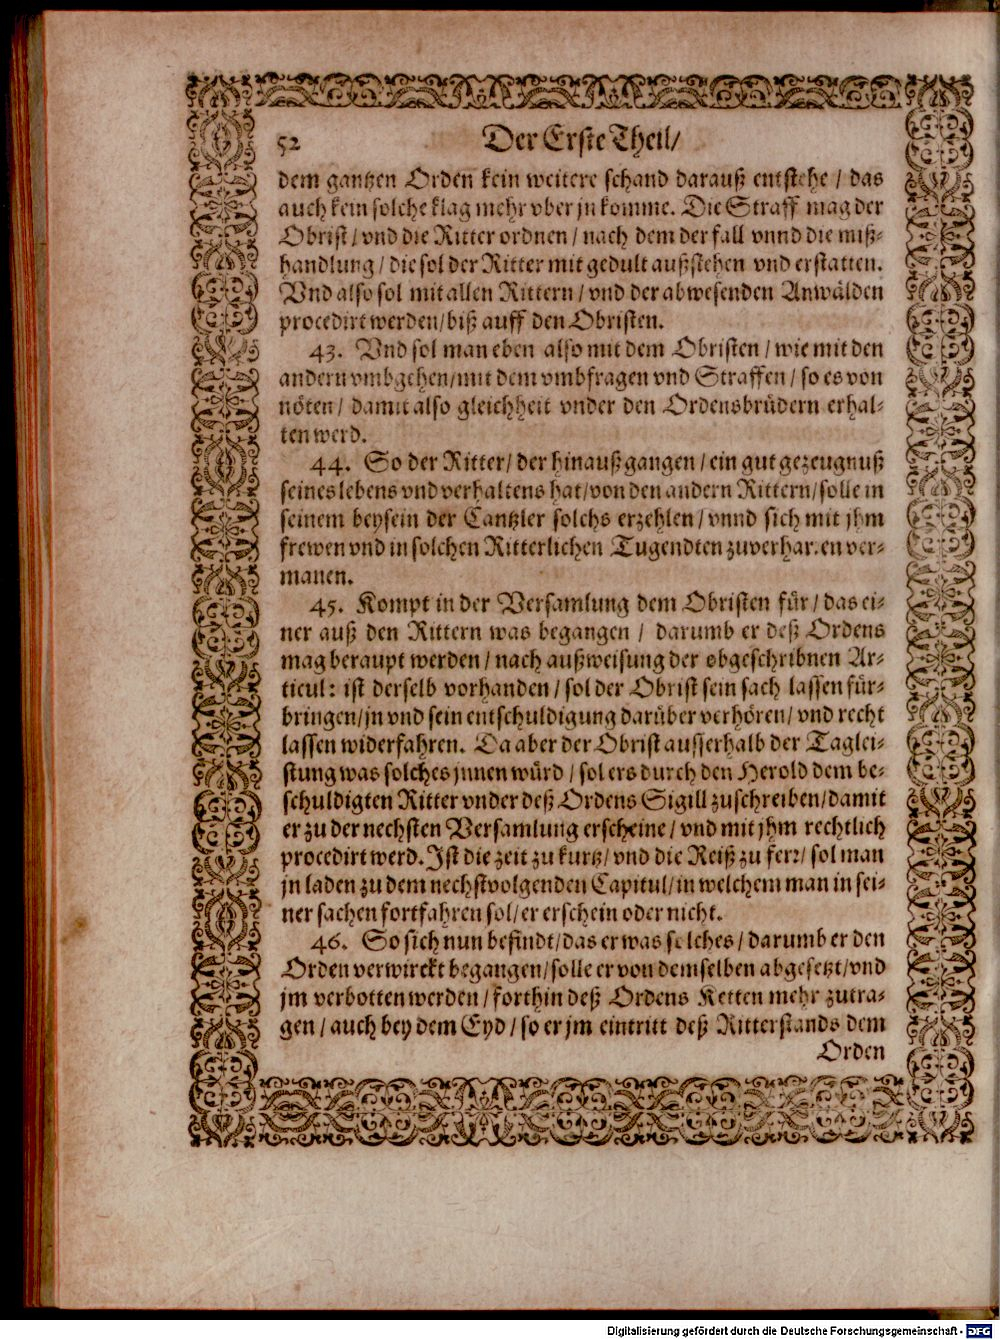 52 Der Erste Theil/
dem gantzen Orden kein weitere schand darauß entstehe / das
auch kein solche klag mehr vber jn komme. Die Straff mag der
Obrist / vnd die Ritter ordnen / nach dem der fall vnnd die miß-
handlung / die sol der Ritter mit gedult außstehen vnd erstatten.
Vnd also sol mit allen Rittern / vnd der abwesenden Anwälden
procedirt werden/ biß auff den Obristen.
43. Vnd sol man eben also mit dem Obristen / wie mit den
andern vmbgehen/mit dem vmbfragen vnd Straffen / so es von
nöten / damit also gleichheit vnder den Ordensbrüdern erhal-
ten werd.
44. So der Ritter/ der hinauß gangen / ein gut gezeugnuß
seines lebens vnd verhaltens hat/von den andern Rittern/solle in
seinem beysein der Cantzler solchs erzehlen / vnnd sich mit jhm
frewen vnd in solchen Ritterlichen Tugendten zuverharren ver-
manen.
45. Kompt in der Versamlung dem Obristen für / das ei-
ner auß den Rittern was begangen / darumb er deß Ordens
mag beraupt werden / nach außweisung der obgeschribnen Ar-
ticul: ist derselb vorhanden / sol der Obrist sein sach lassen für-
bringen/jn vnd sein entschuldigung darüber verhören/ vnd recht
lassen widerfahren. Da aber der Obrist ausserhalb der Taglei-
stung was solches jnnen würd / sol ers durch den Herold dem be-
schuldigten Ritter vnder deß Ordens Sigill zuschreiben/damit
er zu der nechsten Versamlung erscheine / vnd mit jhm rechtlich
procedirt werd. Ist die zeit zu kurtz/ vnd die Reiß zu ferr/ sol man
jn laden zu dem nechstvolgenden Capitul/in welchem man in sei-
ner sachen fortfahren sol/ er erschein oder nicht.
46. So sich nun befindt/das er was solches / darumb er den
Orden verwirckt begangen/solle er von demselben abgesetzt/vnd
jm verbotten werden / forthin deß Ordens Ketten mehr zutra-
gen / auch bey dem Eyd / so er jm eintritt deß Ritterstands dem
Orden
Digitalisierung gefördert durch die Deutsche Forschungsgemeinschaft - DFG